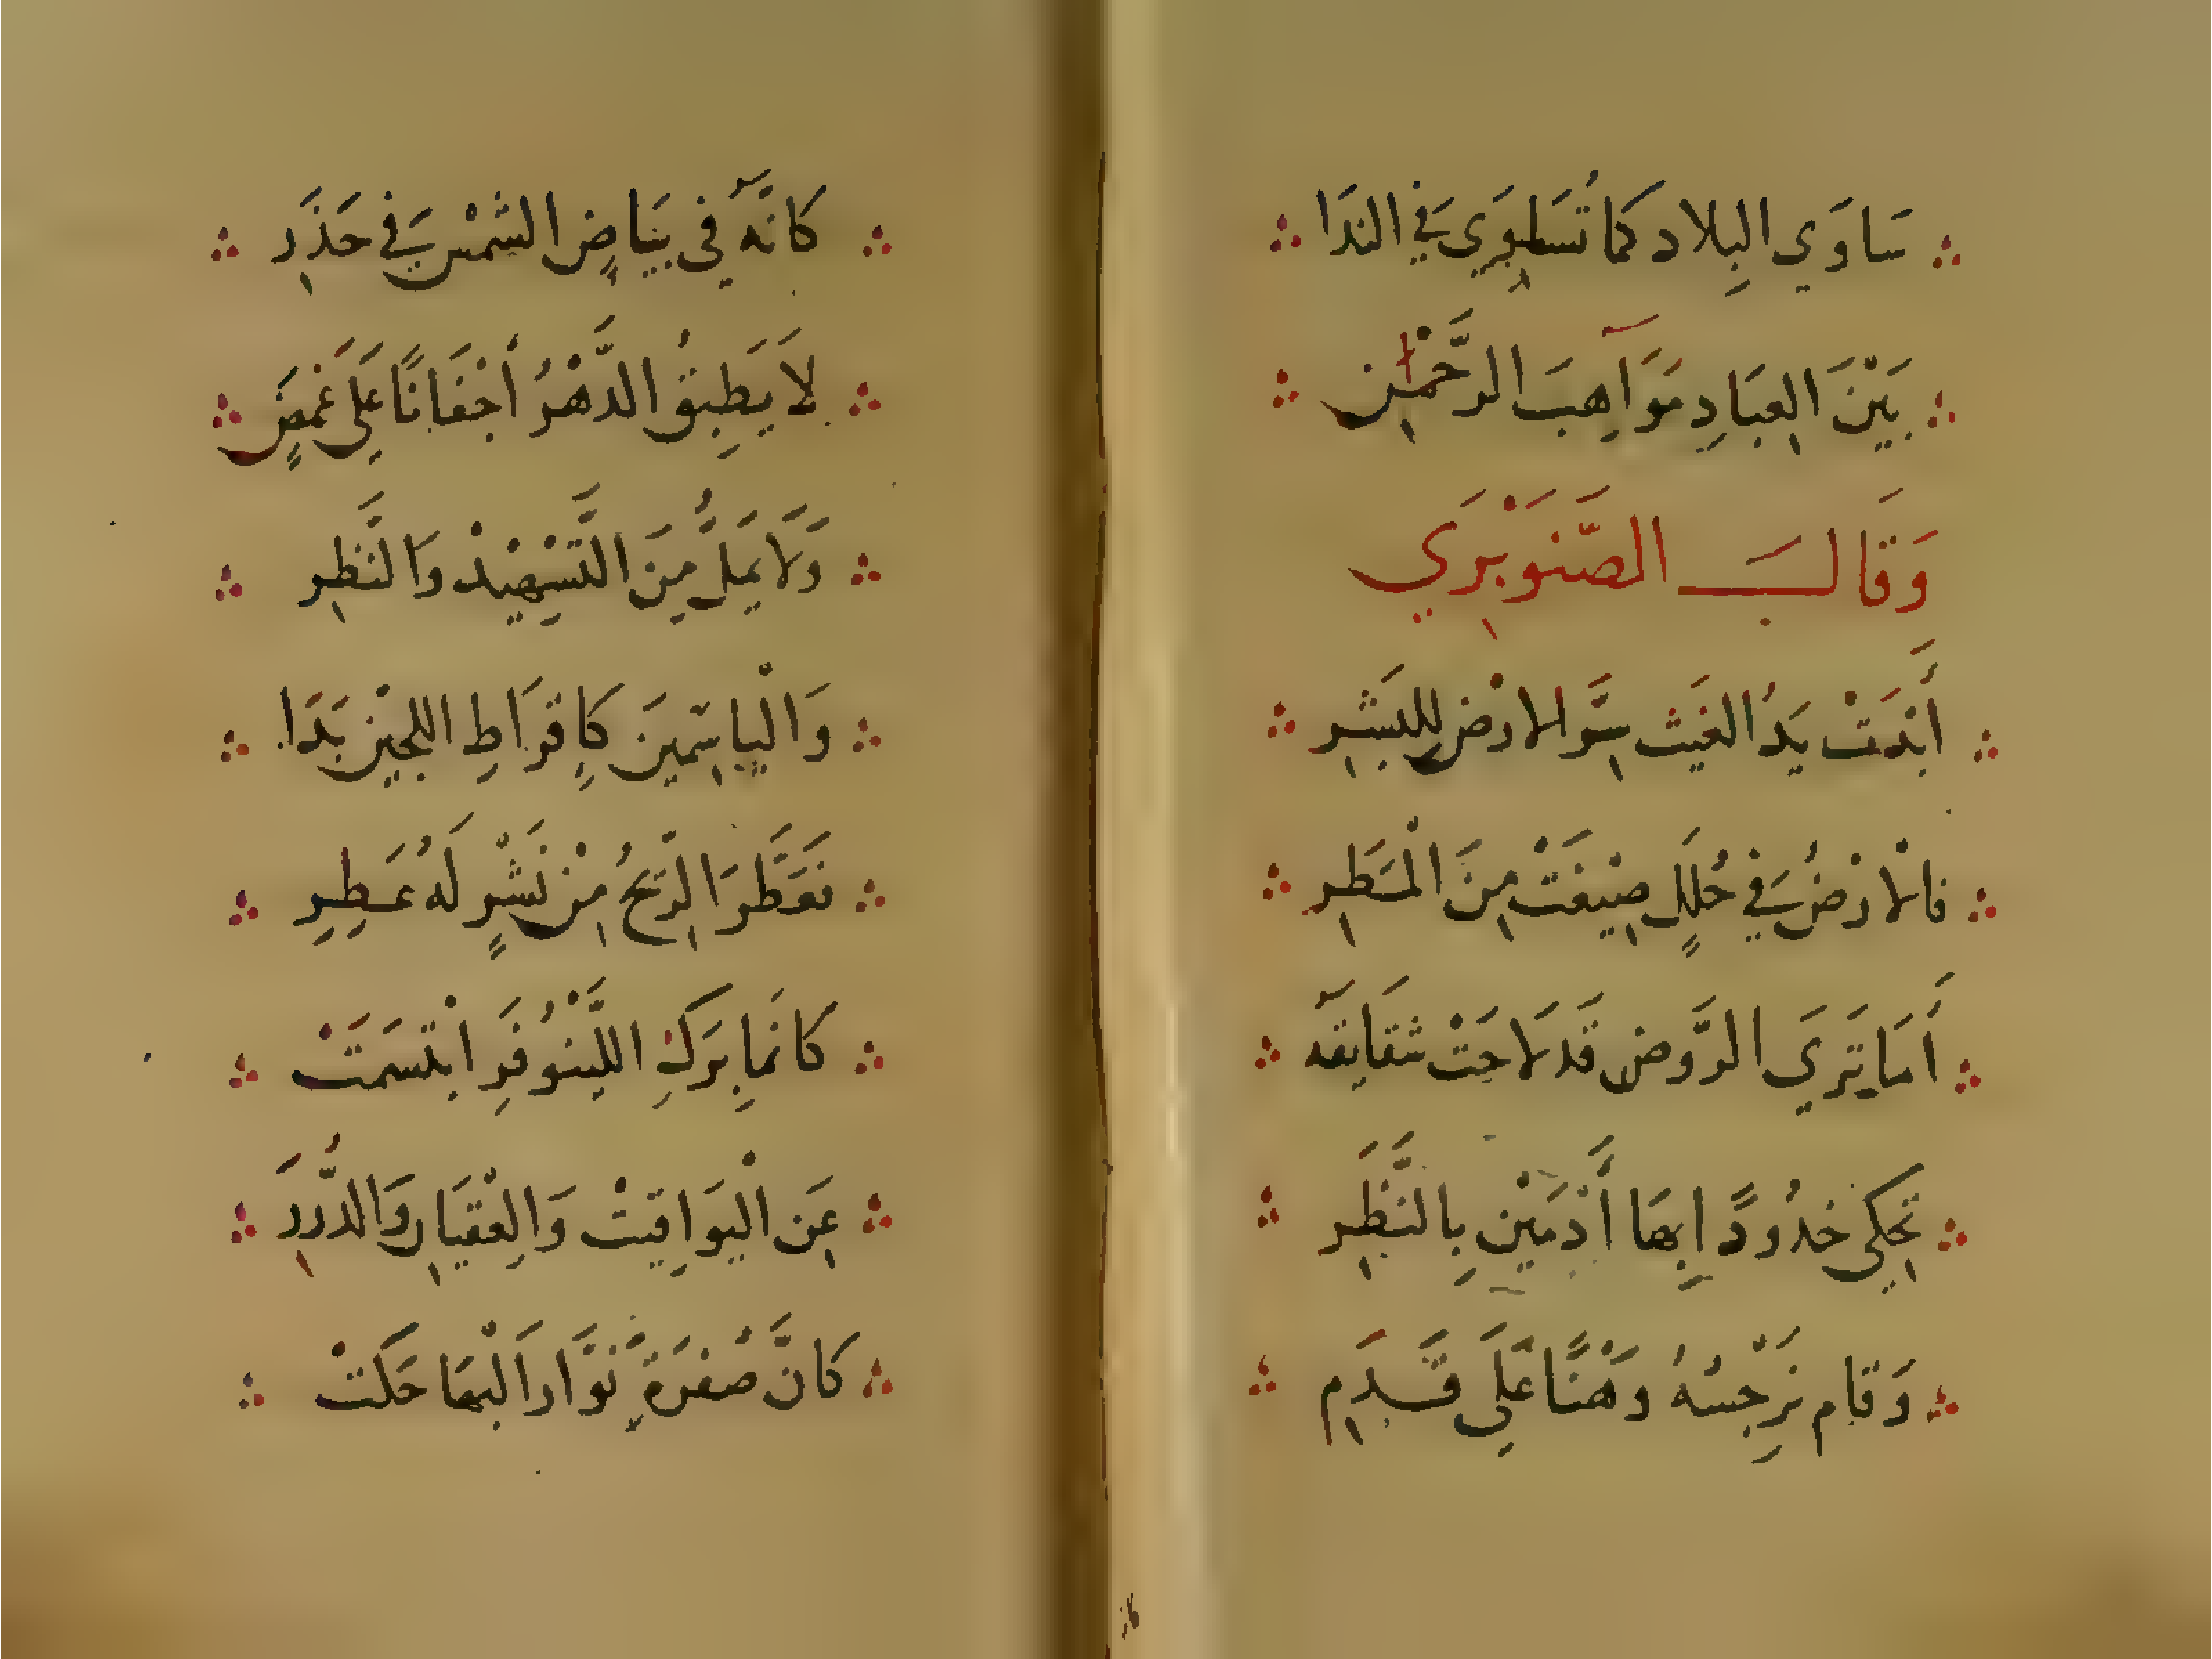 سَاوَي البِلاد كَما تُسَطِوَي في الندَا
بَيْنَ العِبَادِ مَوَآهِبَ الرَّحْمٰنِ
وَقَالَ الصَّنَوْبَرِي
أَبْدَتْ يَدُ الغَيث سِرَّ الارْضِ للبَشَرِ
فَالْارْضُ في حُلَلٍ صِيْغَتْ مِنَ الْمَطَرِ
أَمَا تَرَي الرَّوض قَد لَاحَتْ شَقَايقه
تَحكِي خُدُودًا بِهَا أُدْمَيْنِ بِالنَّظَرِ
وَقام نَرْجِسُهُ وَهْنًا عَلَي قَدَمِ
كَانَّه في بَيَاضِ الشَّمْس في حَذَرِ
لَا يَطبِقُ الدَّهْرُ أَجْفَانًا عَلى غَمضٍ
وَلَا يَمَلُّ مِنَ التَّسْهِيْدْ وَالنَّظرِ
وَالْيَاسَمِينَ كَاِقرَاطِ اللجَيْنِ بَدَا
تَعَطَّرَ الرِّيحُ مِنْ نَشْرٍ لَهُ عَطِرِ
كَانَمَا بِرَكِ اللَّيْنُوفَرِ ابْتسَمَتْ
عَنِ الْيَوَاقِيتْ وَالعِقْيَانِ وَالدُّرَرِ
كَانَّ صُفرَةَ نَوَّارَ الْبهَا حَكَتْ